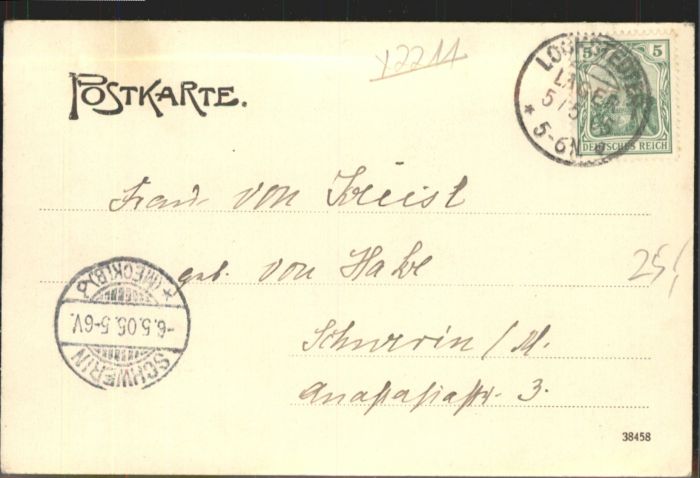 y2211
POSTKARTE.
LOCKSTEDTER
LAGER
5/5 05
* 5-6N *
5 5
DEUTSCHES REICH
Frau von Kleist
geb. von Hake
25,-
Schwerin/M.
Anastasiastr. 3.
* (MECKLB) 2
-6.5.05.5-6V.
SCHWERIN
38458